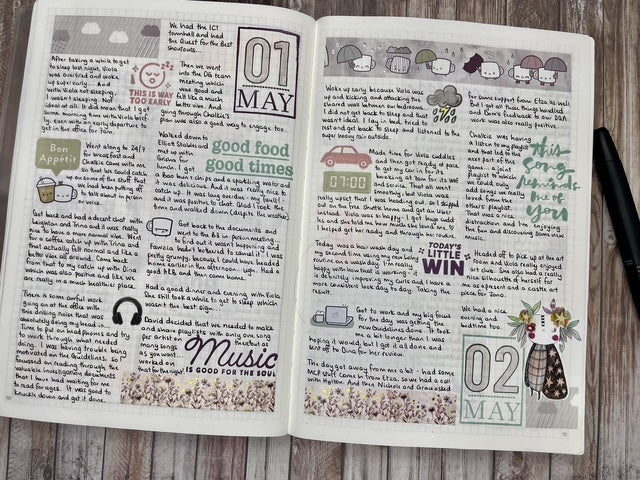 We had the ICT
townhall and had
the Quest for the Best
shoutouts....
01
MAY
After taking a while to get
to sleep last night, Viola
was overtired and woke
up super early... And
with Viola not sleeping,
I wasn't sleeping. Not
ideal at all. It did mean that I got
some morning time with Viola brief-
ly, even with an early departure to
get in the office for 7am.
THIS IS WAY
TOO EARLY
Then we went
into the DQ team
meeting which
was good and
felt like a much
better vibe. And
going through Chalkie's
PDM was also a good way to engage too.
Bon
Appetit
Went along to 24/7
for breakfast and
Chalkie came with me
so that we could catch
up on some of the stuff that
we had been putting off
to talk about in person
or voice.
Walked down to
Elliot Stables and
met up with
Grizz for
lunch. I got
a Bao bun & chips and a sparkling water and
it was delicious. And it was really nice to
catch up. It was long overdue - my fault!
and it was positive to chat. Glad I took the
time and walked down (despite the weather)
good food
good times
Got back and had a decent chat with
Leighton and Trina and it was really
nice to have a more normal vibe. Went
for a coffee catch up with Trina and
that actually felt normal and like a
better vibe all around. Came back
from that to my catch up with Dina
which was also positive and like we
are in a much healthier place.
Got back to the documents and
went to the BA in-person meeting...
to find out it wasn't happening and
Fawzia hadn't bothered to cancel it! I was
pretty grumpy, because I could have headed
home earlier in the afternoon - ugh. Had a
good AEB and then came home.
Had a good dinner and evening with Viola.
She still took a while to get to sleep which
wasn't the best sign.
There is some awful work
going on at the office with
this drilling noise that was
absolutely doing my head in...
Time to put on headphones and try
to work through what needed
doing. I was having trouble being
motivated on the Guidelines, so
focussed on reading through the
valuable investigation documents
that I have had waiting for me
to read for ages. It was good to
knuckle down and get it done.
David decided that we needed to make
and share playlists with only one song
per artist on
many songs
as you want...
worked on
that for the night!
Music
IS GOOD FOR THE SOUL
Woke up early because Viola was
up and kicking and attacking the
shared wall between our bedrooms.
I did not get back to sleep and that
wasn't ideal. I lay in bed, tried to
rest and get back to sleep and listened to the
super heavy rain outside.
for some support from Etza as well.
But I got all those things handled
and Tom's feedback to our DQA
work was also really positive.
7:00
Made time for Viola cuddles
and then got ready to go
to get my car in for its
booking at 7am for its WOF
and service. That all went
smoothly, but Viola was
really upset that I was heading out, so I skipped
out on the free Shuttle Home and got an Uber
instead. Viola was so happy - I got huge cudd-
les and she told me how much she loved me. I
helped get her ready and through her routine.
Chalkie was having
a listen to my playlist
and that led to the
next part of the
game... a joint
playlist to which
we could only
add songs we really
loved from the
others' playlist.
That was a nice
distraction and I'm enjoying
the fun and discovering some new
music.
this
song
reminds
me of
you
Today was a hair wash day and
my second time using my new baby
routine on a wash day. I'm really
happy with how that is working - it
is definitely improving my curls and I have a
more consistent look day to day. Taking the
result.
TODAY'S
LITTLE
WIN
Headed off to pick up at the
same time and Viola really enjoyed
art club. She also had a really
nice silhouette of herself for
me as a present and a castle art
piece for Iona.
Got to work and my big focus
for the day was getting the
new Guidelines done. It took
me a bit longer than I was
hoping it would, but I got it all done and
sent off to Dina for her review.
We had a nice
evening and
bedtime too.
This day got away from me a bit - had some
MCP stuff come in from Etza, so we had a call
with Hollton. And then Nichole and Grace asked
02
MAY